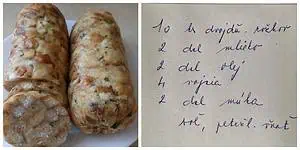 10 ks dvojdň. rožkov
2 del mlieko
2 del olej
4 vajcia
2 del múka
soľ, petržl. vňať